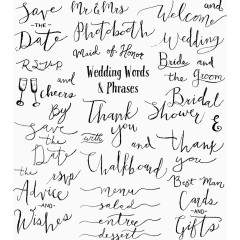 Save
THE
Date
Mr & Mrs
Photobooth
Maid of Honor
and
Welcome
and
Wedding
R.S.V.P
and
cheers
Wedding Words
& Phrases
Bride and
the Groom
By
Thank
you
with
Bridal
Shower
&
Save
the
Date
and
Chalkboard
Thank
you
the rsvp
Advice
AND
Wishes
menu
salad
entree
dessert
Best Man
Cards
AND
Gifts